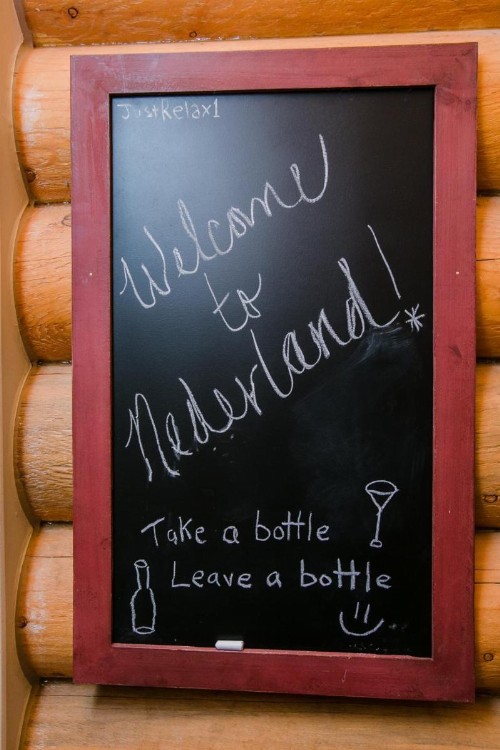 JustRelax1
Welcome
to
Nederland!*
Take a bottle
Leave a bottle